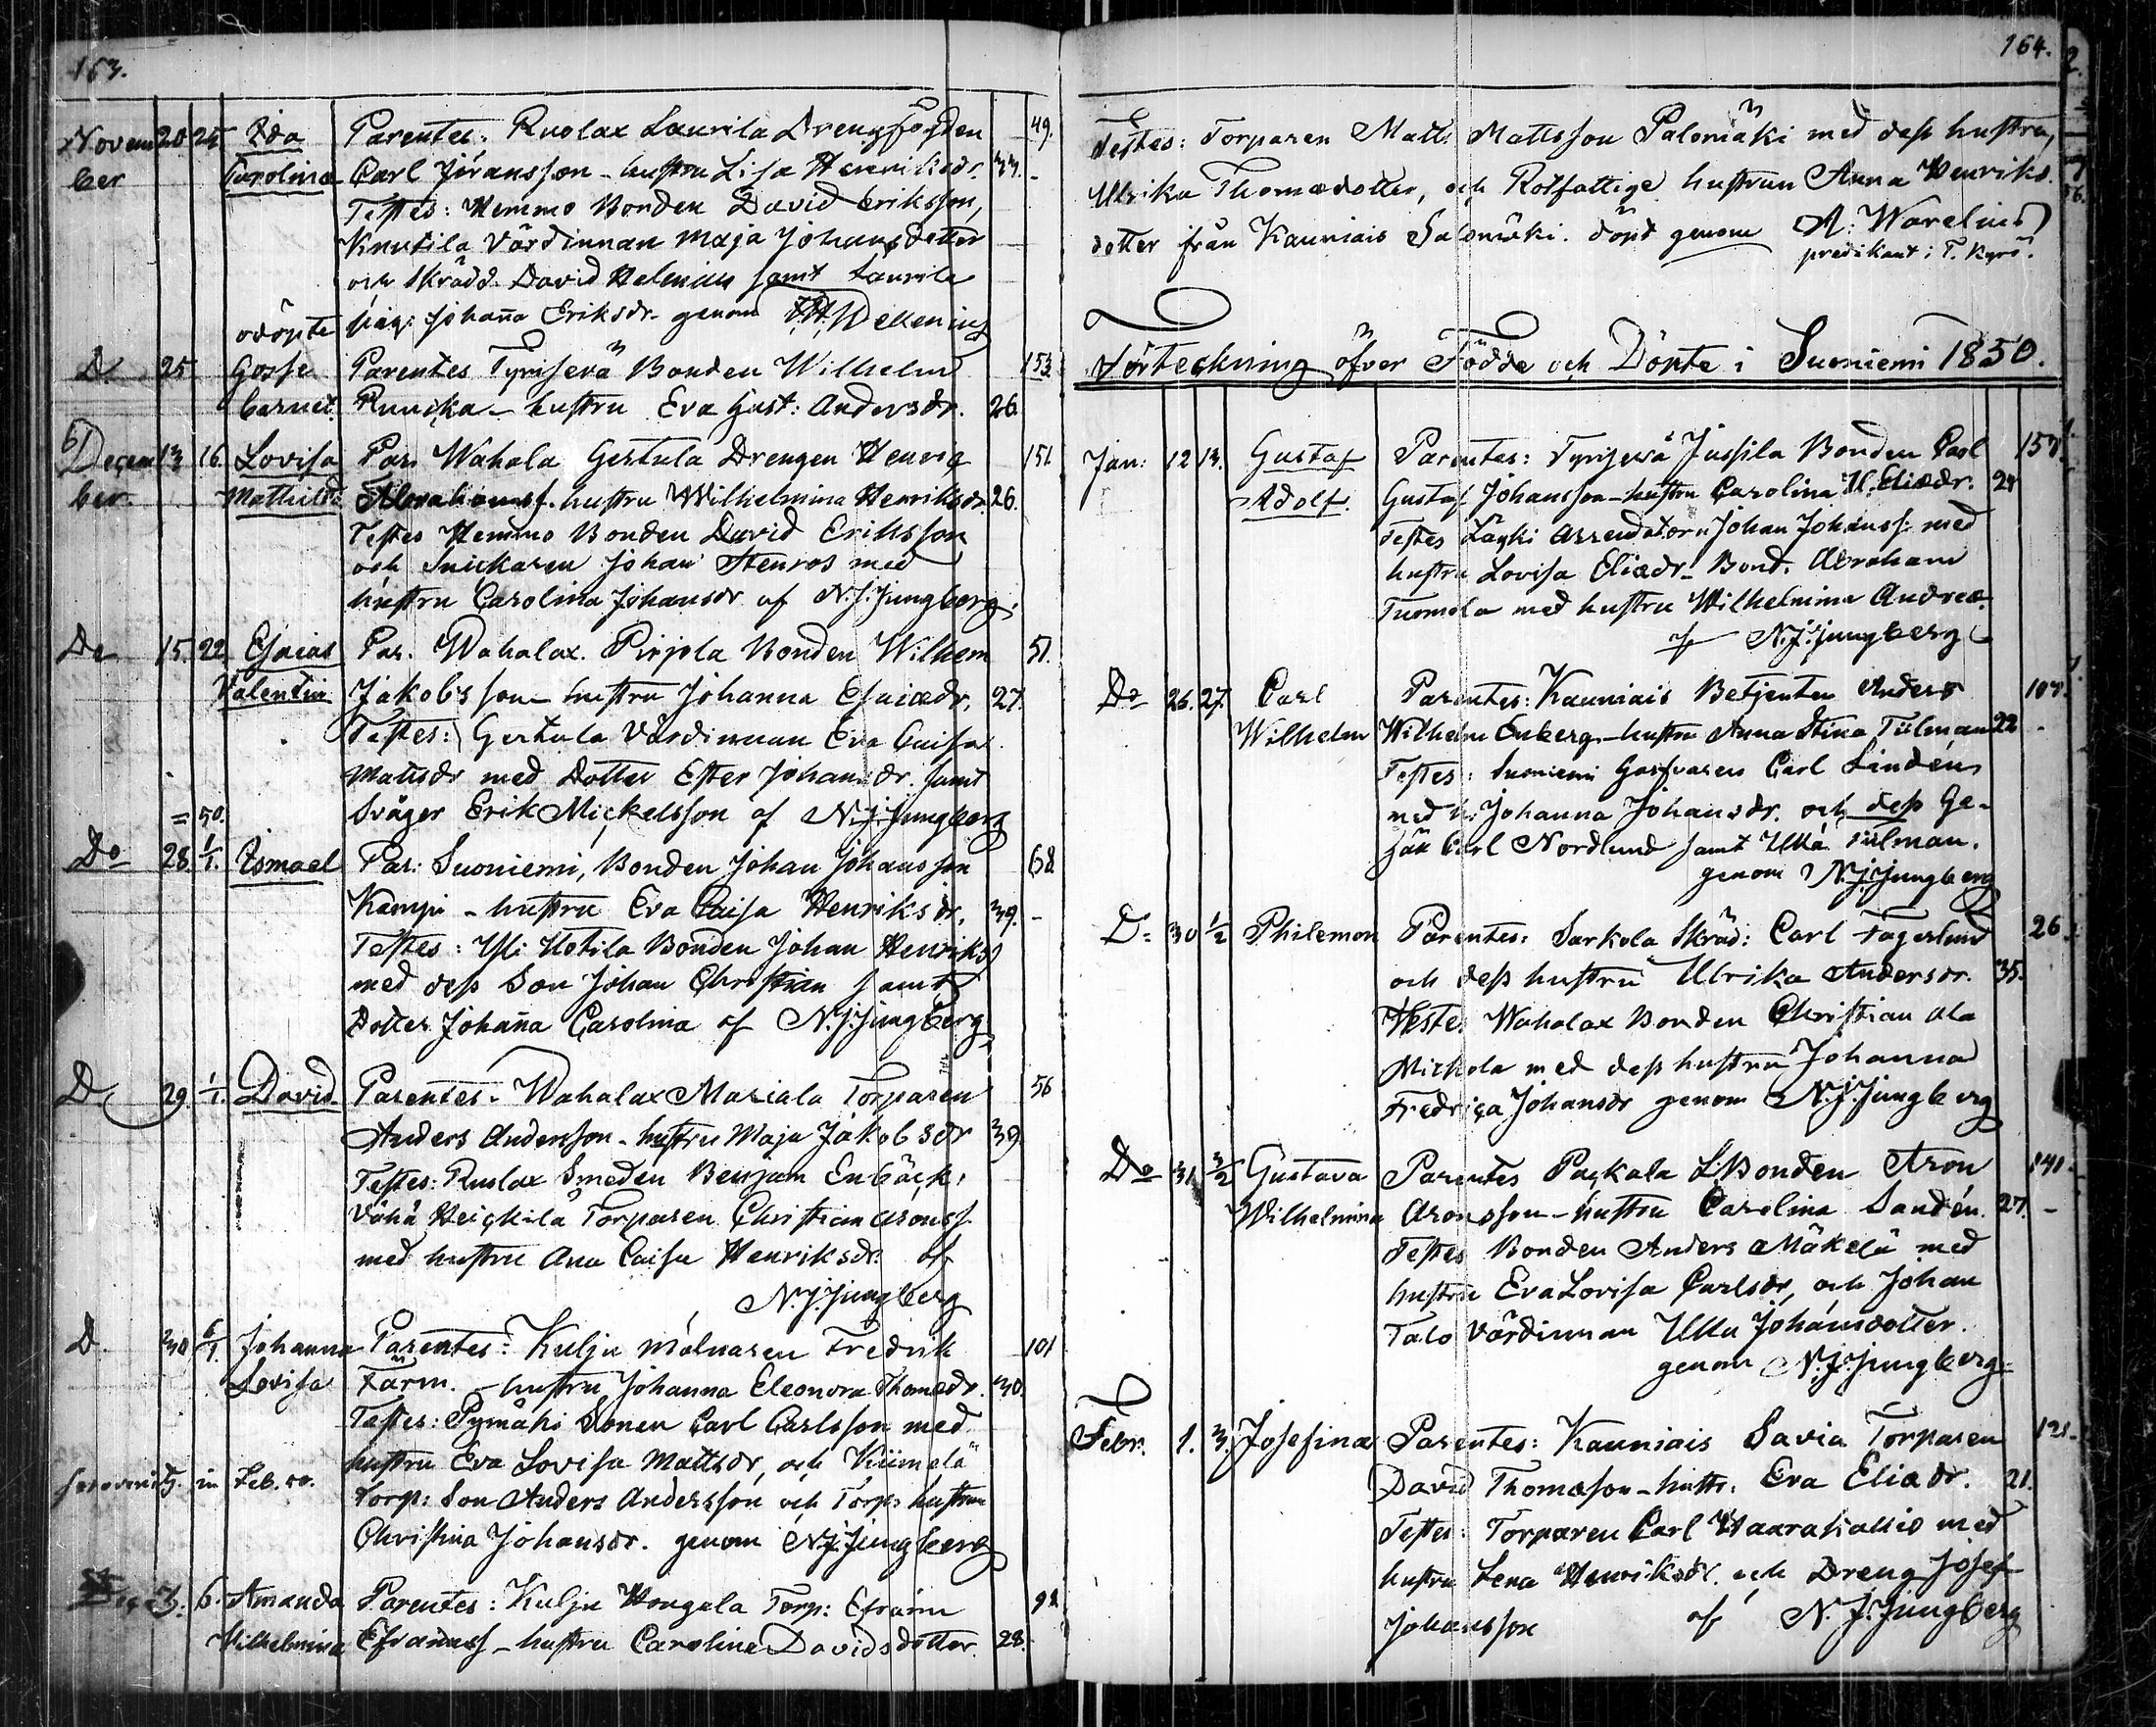 163.
November 20. 25. Ida Carolina Parentes: Ruolax Laurila Drengfogden 49.
Carl Jöransson - hustru Lisa Henriksdr. 33.
Testes: Hemmo Bonden David Eriksson,
Knutila Värdinnan Maja Johansdotter
och Skrädd. David Helenius samt Laurila
pig: Johanna Eriksdr. genom
D. 25. odöpte Gosse barnet. Parentes Tyrisevä Bonden Wilhelm 153.
hustru Eva Gust: Andersdr. 26.
December 13 16. Lovisa Mathilda Par. Wahala Gertula Drengen Henric 151
Abrahamss. hustru Wilhelmina Henriksdr. 26.
Testes Hemmo Bonden David Eriksson
och Snickaren Johan Stenros med
hustru Carolina Johansdr af N.J. Jungberg.
Do 15. 22. Esaias Valentin Par. Wahalax. Pirjola Bonden Wilhem 51.
Jakobsson - hustru Johanna Esaiædr. 27.
Testes: Gertula Värdinnan Eva Caisa
Mattsdr med Dotter Ester Johansdr. samt
Svåger Erik Mickelsson af N.J. Jungberg
= 50.
Do 28. 1/1. Ismael Par: Suoniemi, Bonden Johan Johansson 68.
Kamppi - hustru Eva Caisa Henriksdr. 39.
Testes: Yli Uotila Bonden Johan Henrikss
med dess Son Johan Christian samt
Dotter Johanna Carolina af N.J. Jungberg
D 29. 1/1. David Parentes: Wahalax Mariala Torparen 56
Anders Andersson - hustru Maja Jakobsdr 39
Testes: Ruolax Smeden Benjam Enbäck,
Vähä Heickilä Torparen Christian Aronss
med hustru Ana Caisa Henriksdr. af
N.J. Jungberg
D. 30 6/1. Johanna Lovisa Parentes: Kulju mölnaren Fredrik 101
Färm. - hustru Johanna Eleonora Thomædr. 30.
Testes: Pymäki Sonen Carl Carlsson med
hustru Eva Lovisa Mattsdr, och Kiimelä
Torp: Son Anders Andersson och Torp: hustrun
Christina Johansdr. genom N.J. Jungberg
in Feb. 50.
6. Amanda Wilhelmina Parentes: Kulju Hongela Torp: Efraim 98
Efraimss - hustru Carolina Davidsdotter. 28.
164.
Testes: Torparen Matts Mattsson Palomäki med dess hustru,
Ulrika Thomædotter, och Rotfattige hustrun Anna Henriks-
dotter från Kauniais Salomäki. döpt genom A. Warelius
predikant i T. Kyrö.
Förteckning öfver Födde och Döpte i Suoniemi 1850.
Jan: 12 13. Gustaf Adolf. Parentes: Tyrisevä Jussila Bonden Carl 157.
Gustaf Johansson - hustru Carolina U. Eliædr. 24
Testes Läyki Arrendatorn Johan Johanss: med
hustru Lovisa Eliædr - Bond. Abraham
Tuomola med hustru Wilhelmina Andreæ.
af N.J. Jungberg
Do 26. 27. Carl Wilhelm Parentes: Kauniais Betjenten Anders 107.
Wilhelm Enberg - hustru Anna Stina Tülman 22
Testes: Suoniemi Garfvaren Carl Lindén
med h: Johanna Johansdr. och dess Ge-
säll Carl Nordlund samt Ulla Tülman.
genom N.J. Jungberg
Do 30 1/2 Philemon Parentes: Sarkola Skräd: Carl Fagerlund 26
och dess hustru Ulrika Andersdr. 35.
Testes Wahalax Bonden Christian Ala
Mickola med dess hustru Johanna
Fredrica Johansdr genom N.J. Jungberg
Do 31. 3/2 Gustava Wilhelmina Parentes Packala L:Bonden Aron 141
Aronsson - hustru Carolina Sandén. 27.
Testes Bonden Anders Mäkelä med
hustru Eva Lovisa Carlsdr, och Johan
Talo Värdinnan Ulla Johansdotter.
genom N.J. Jungberg
Febr. 1. 3. Josefina Parentes: Kauniais Savia Torparen 121.
David Thomæson - hustr: Eva Eliædr. 21.
Testes: Torparen Carl Haarakallio med
hustru Lena Henriksdr. och Dreng Josef
Johansson af N.J. Jungberg